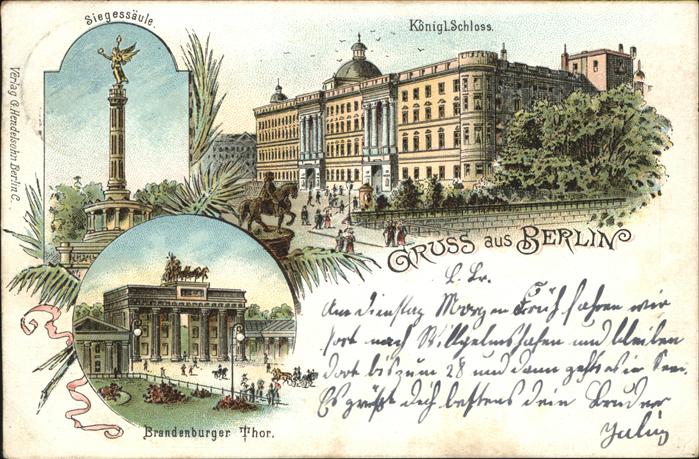 Siegessäule.
Königl. Schloss.
Verlag G. Hendelsohn Berlin C.
GRUSS aus BERLIN
L. Br.
Am Dienstag Morgen Früh fahren wir
fort nach Wilhelmshafen und bleiben
dort bis zum 28 und dann gehts in See.
Es grüßt dich bestens dein Bruder
Julius
Brandenburger Thor.